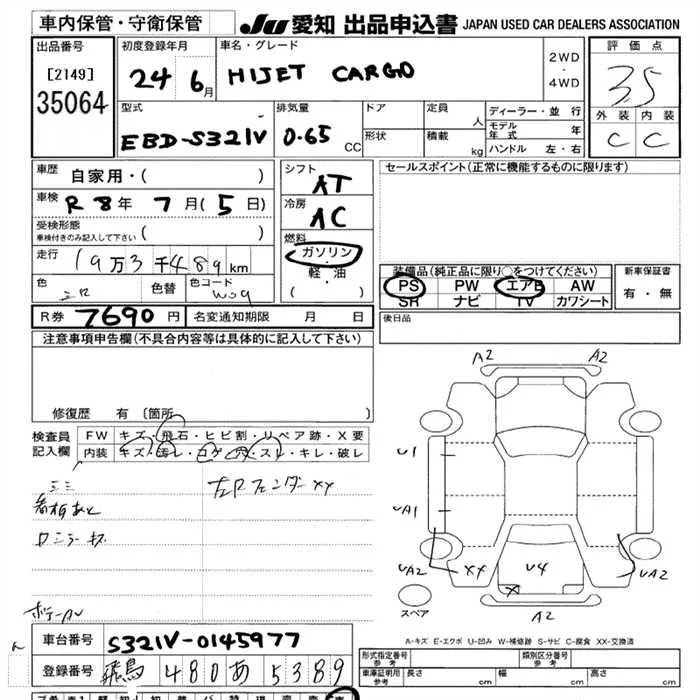 車内保管・守衛保管
JU 愛知 出品申込書 JAPAN USED CAR DEALERS ASSOCIATION
出品番号
[2149]
35064
初度登録年月
24 6月
車名・グレード
HIJET CARGO
2WD
・
4WD
評価点
3.5
外装 内装
C C
型式
EBD-S321V
排気量
0.65 CC
ドア
形状
定員 人
積載 kg
ディーラー・並行
モデル年式 年
ハンドル 左・右
車歴 自家用・( )
車検 R8年 7月(5日)
受検形態
車検付きのみ記入して下さい ( )
走行 19万3千489km
色 色替 色コード
W09
シフト
AT
冷房
AC
燃料
ガソリン
・
軽・油
( )
セールスポイント(正常に機能するものに限ります)
装備品(純正品に限り○をつけてください)
PS PW エアB AW
SR ナビ TV カワシート
新車保証書
有・無
R券 7690円 名変通知期限 月 日
後日品
注意事項申告欄(不具合内容等は具体的に記入して下さい)
修復歴 有 〔箇所 〕
検査員
記入欄
FW キズ・飛石・ヒビ割・リペア跡・X要
内装 キズ・汚レ・コゲ・穴・スレ・キレ・破レ
看板あと
左Rフェンダーxx
A2 A2
U1
UA1
UA2 XX U4 X UA2
A2
スペア
A-キズ E-エクボ U-凹み W-補修跡 S-サビ C-腐食 XX-交換済
車台番号 S321V-0145977
登録番号 飛鳥 480 あ 5389
形式指定番号
参考
類別区分番号
参考
車庫証明用
参考
長さ cm 幅 cm 高さ cm